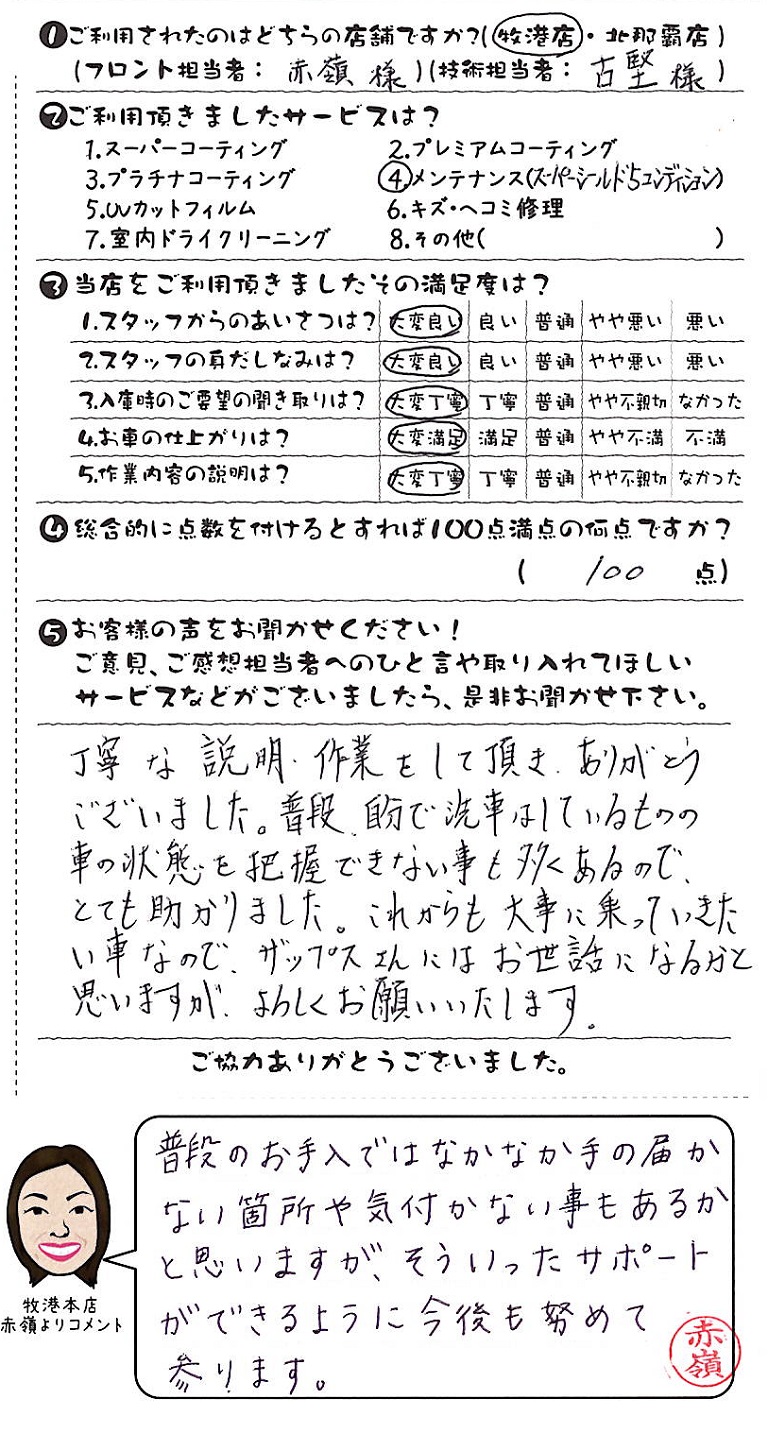 ❶ご利用されたのはどちらの店舗ですか?(牧港店・北那覇店)
(フロント担当者: 赤嶺 様)(技術担当者: 古堅 様)
❷ご利用頂きましたサービスは?
1.スーパーコーティング 2.プレミアムコーティング
3.プラチナコーティング ④.メンテナンス(スーパーシールド5コンディション)
5.UVカットフィルム 6.キズ・ヘコミ修理
7.室内ドライクリーニング 8.その他( )
❸当店をご利用頂きましたその満足度は?
1.スタッフからのあいさつは? 大変良い 良い 普通 やや悪い 悪い
2.スタッフの身だしなみは? 大変良い 良い 普通 やや悪い 悪い
3.入庫時のご要望の聞き取りは? 大変丁寧 丁寧 普通 やや不親切 なかった
4.お車の仕上がりは? 大変満足 満足 普通 やや不満 不満
5.作業内容の説明は? 大変丁寧 丁寧 普通 やや不親切 なかった
❹総合的に点数を付けるとすれば100点満点の何点ですか?
( 100 点)
❺お客様の声をお聞かせください!
ご意見、ご感想担当者へのひと言や取り入れてほしい
サービスなどがございましたら、是非お聞かせ下さい。
丁寧な説明・作業をして頂き、ありがとう
ございました。普段、自分で洗車はしているものの
車の状態を把握できない事も多くあるので、
とても助かりました。これからも大事に乗っていきた
い車なので、ザップスさんにはお世話になるかと
思いますが、よろしくお願いいたします。
ご協力ありがとうございました。
普段のお手入ではなかなか手の届か
ない箇所や気付かない事もあるか
と思いますが、そういったサポート
ができるように今後も努めて
参ります。
赤嶺
牧港本店
赤嶺よりコメント